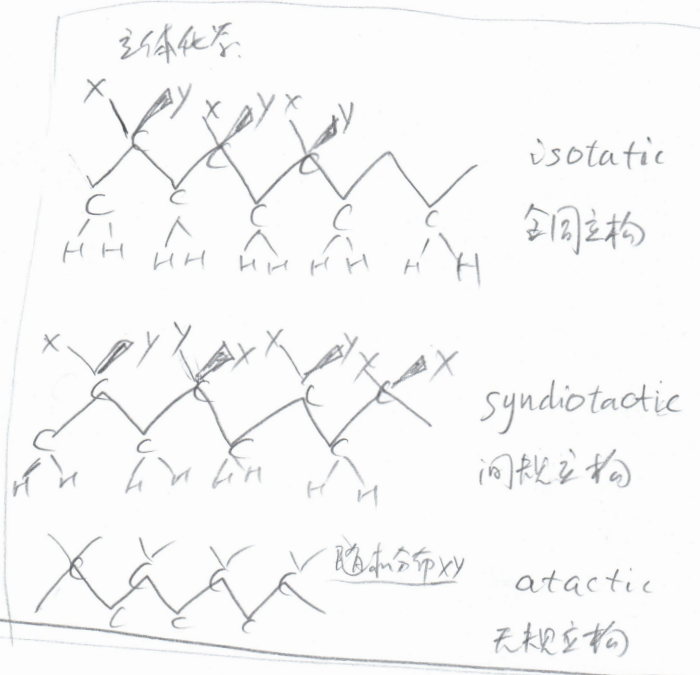 立体化学.
X Y X Y X Y
C C C
C C C C C
H H H H H H H H H H
isotatic
全同立构
X Y Y X X Y X X
C C C C
C C C C
H H H H H H H H
syndiotactic
间规立构
C C C C
C C C
随机分布XY
atactic
无规立构